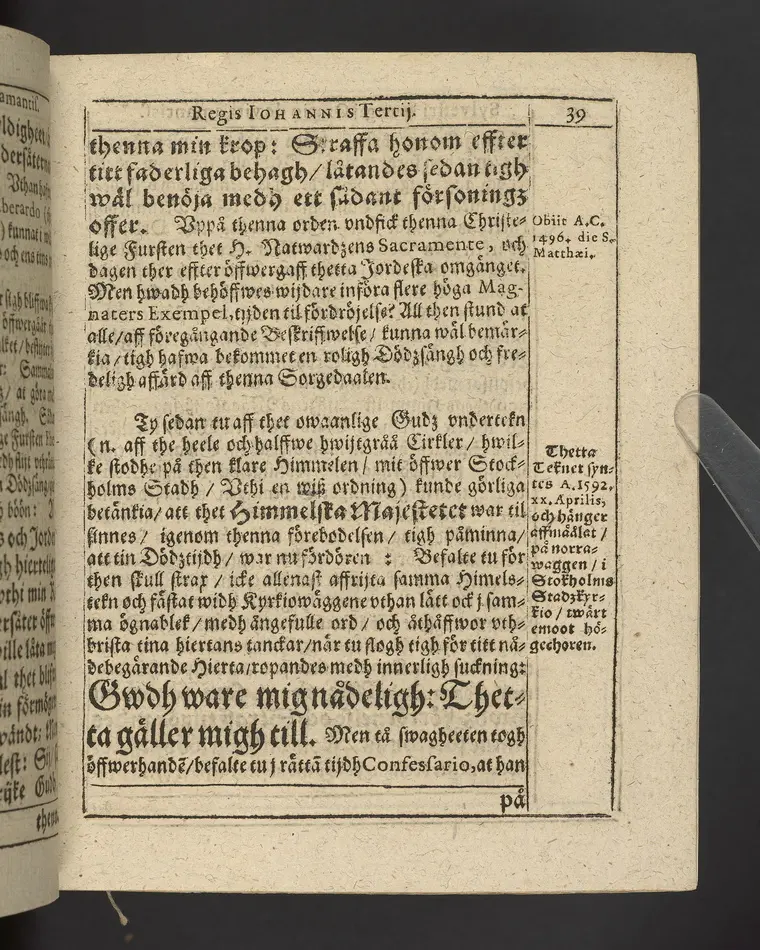 Regis IOHANNIS Tertij.
39
thenna min krop: Straffa honom effter
titt faderliga behagh/ låtandes sedan tigh
wäl benöja medh ett sådant försonings
offer. Vppå thenna orden vndfick thenna Christe-
lige Fursten thet H. Natwardzens Sacramente, och
dagen ther effter öffwergaff thetta Jordeska omgänget.
Men hwadh behöffwes wijdare införa flere höga Mag-
naters Exempel, tijden til fördröjelse? All then stund at
alle/ aff föregångande Beskriffwelse/ kunna wäl bemär-
kia/ tigh hafwa bekommet en roligh Dödzsängh och fre-
deligh affärd aff thenna Sorgedaalen.
Obiit A.C.
1496. die S.
Matthæi.
Ty sedan tu aff thet owaanlige Gudz vndertekn
(n. aff the heele och halffwe hwijtgråå Cirkler/ hwil-
ke stodhe på then klare Himmelen/ mit öffwer Stock-
holms Stadh/ Vthi en wiß ordning) kunde görliga
betänkia/ att thet Himmelska Majestetet war til
sinnes/ igenom thenna förebodelsen/ tigh påminna/
att tin Dödztijdh/ war nu för dören: Befalte tu för
then skull strax/ icke allenast affrijta samma Himels-
tekn och fästat widh Kyrkiowäggene vthan lätt ock j sam-
ma ögnablek/ medh ångefulle ord/ och åthäffwor vth-
brista tina hiertans tanckar/ när tu slogh tigh för titt nå-
debegärande Hierta/ ropandes medh innerligh suckning:
Gwdh ware mig nådeligh: Thet-
ta gäller migh till. Men tå swagheeten togh
öffwerhandẽ/ befalte tu j rättã tijdh Confessario, at han
Thetta
Teknet syn-
tes A. 1592.
xx. Aprilis,
och hänger
affmäålat/
på norra-
waggen/ i
Stokholms
Stadzkyr-
kio/ twärt
emoot hö-
gechoren.
på